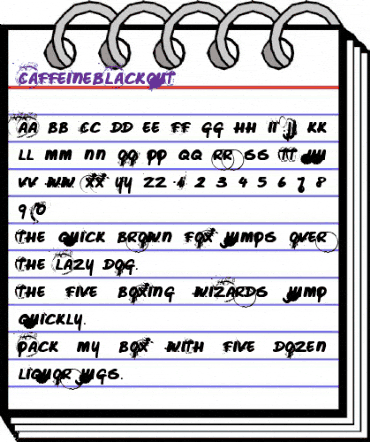 CAFFEINEBLACKOUT
AA BB CC DD EE FF GG HH II JJ KK
LL MM NN OO PP QQ RR SS TT UU
VV WW XX YY ZZ 1 2 3 4 5 6 7 8
9 0
THE QUICK BROWN FOX JUMPS OVER
THE LAZY DOG.
THE FIVE BOXING WIZARDS JUMP
QUICKLY.
PACK MY BOX WITH FIVE DOZEN
LIQUOR JUGS.